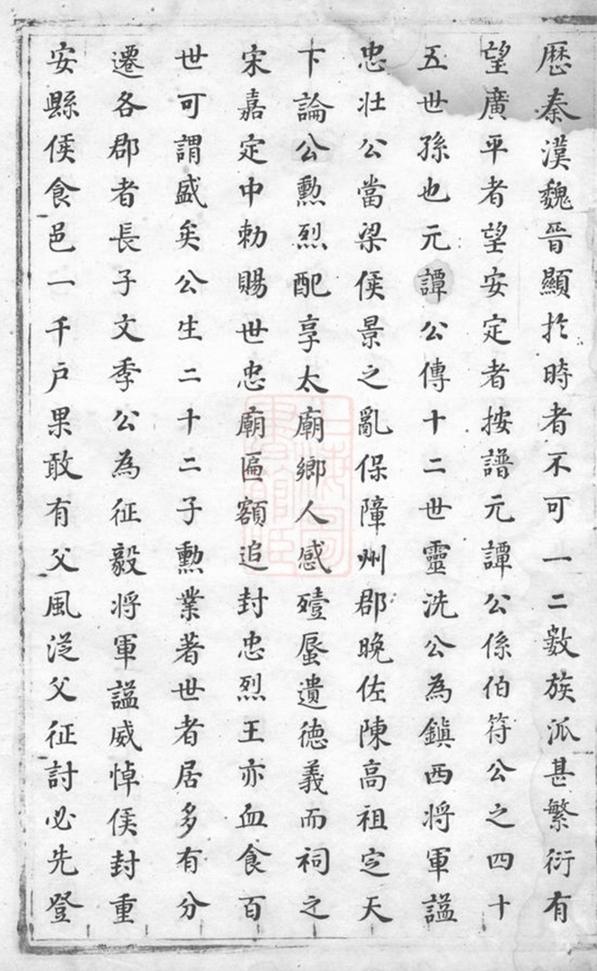 歷秦漢魏晉顯扵時者不可一二數族派甚繁衍有
望廣平者望安定者按譜元譚公係伯符公之四十
五世孫也元譚公傳十二世靈洗公為鎮西將軍謚
忠壯公當梁侯景之亂保障州郡晚佐陳高祖定天
下論公勲烈配享太廟鄉人感 蜃遺德義而祠之
宋嘉定中勅賜世忠廟匾額追封忠烈王亦血食百
世可謂盛矣公生二十二子勲業著世者居多有分
遷各郡者長子文季公為征毅將軍謚威悼侯封重
安縣侯食邑一千戶果敢有父風從父征討必先登